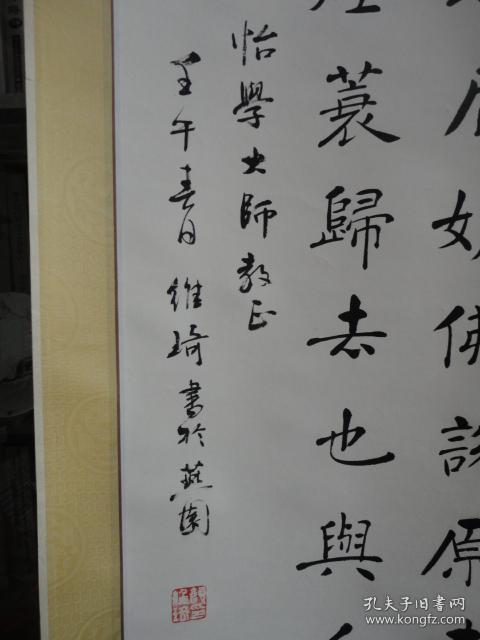 佛說原
蓑歸去也與
怡學大師教正
壬午春日維琦書於燕園
孔夫子旧书网
www.kongfz.com